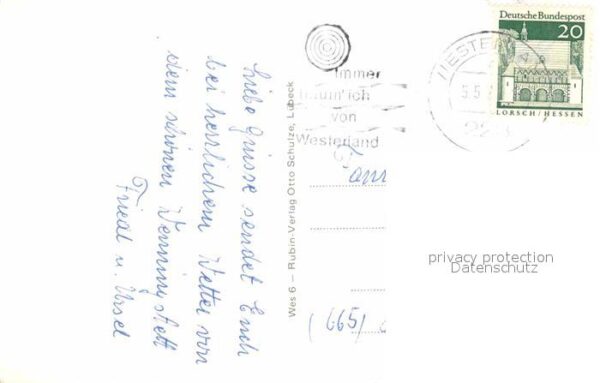 Liebe Grüsse sendet Euch
bei herrlichem Wetter von
dem schönen Wenningstedt
Friedl u. Ursel
Wes 6 – Rubin-Verlag Otto Schulze, Lübeck
Immer
träum' ich
von
Westerland
WESTERLA
5.5
Deutsche Bundespost
20
LORSCH/HESSEN
Fam
(665)
privacy protection
Datenschutz